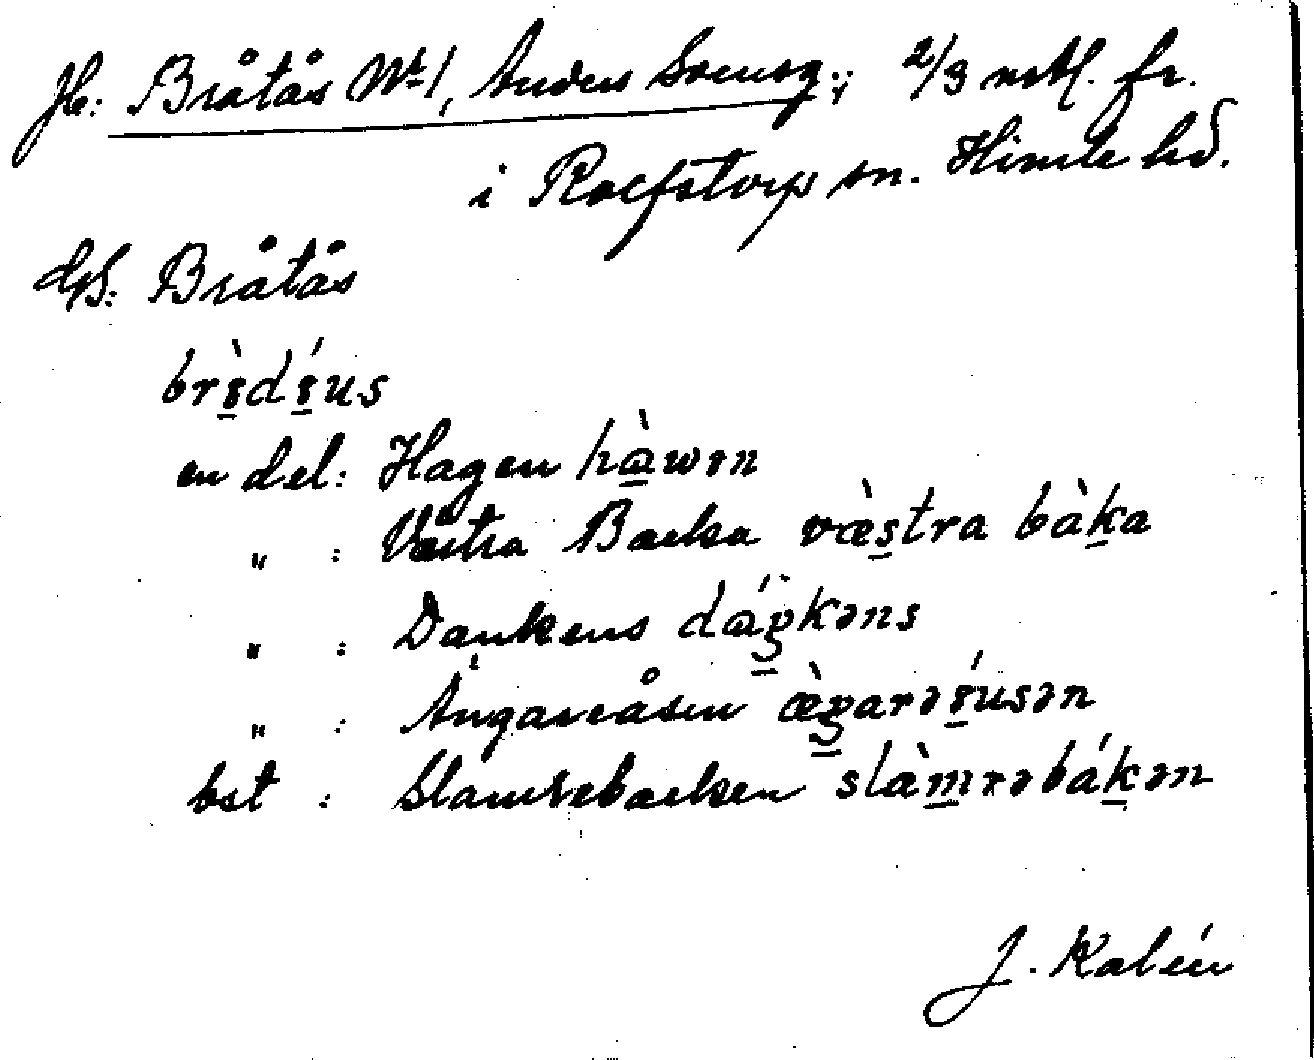 Jb: Bråtås Nr 1, Anders Svensg:; 2/3 mtl. fr.
i Rolfstorp sn. Himle hd.
GS: Bråtås
brɤ̀dɤ́us
en del: Hagen hàwən
„ : Västra Backa væ̀stra bàka
„ : Dankens dáŋkəns
„ : Ängareåsen æ̀ŋarəɤ́usən
bst : Slamrebacken slàmrəbákən
J. Kalén